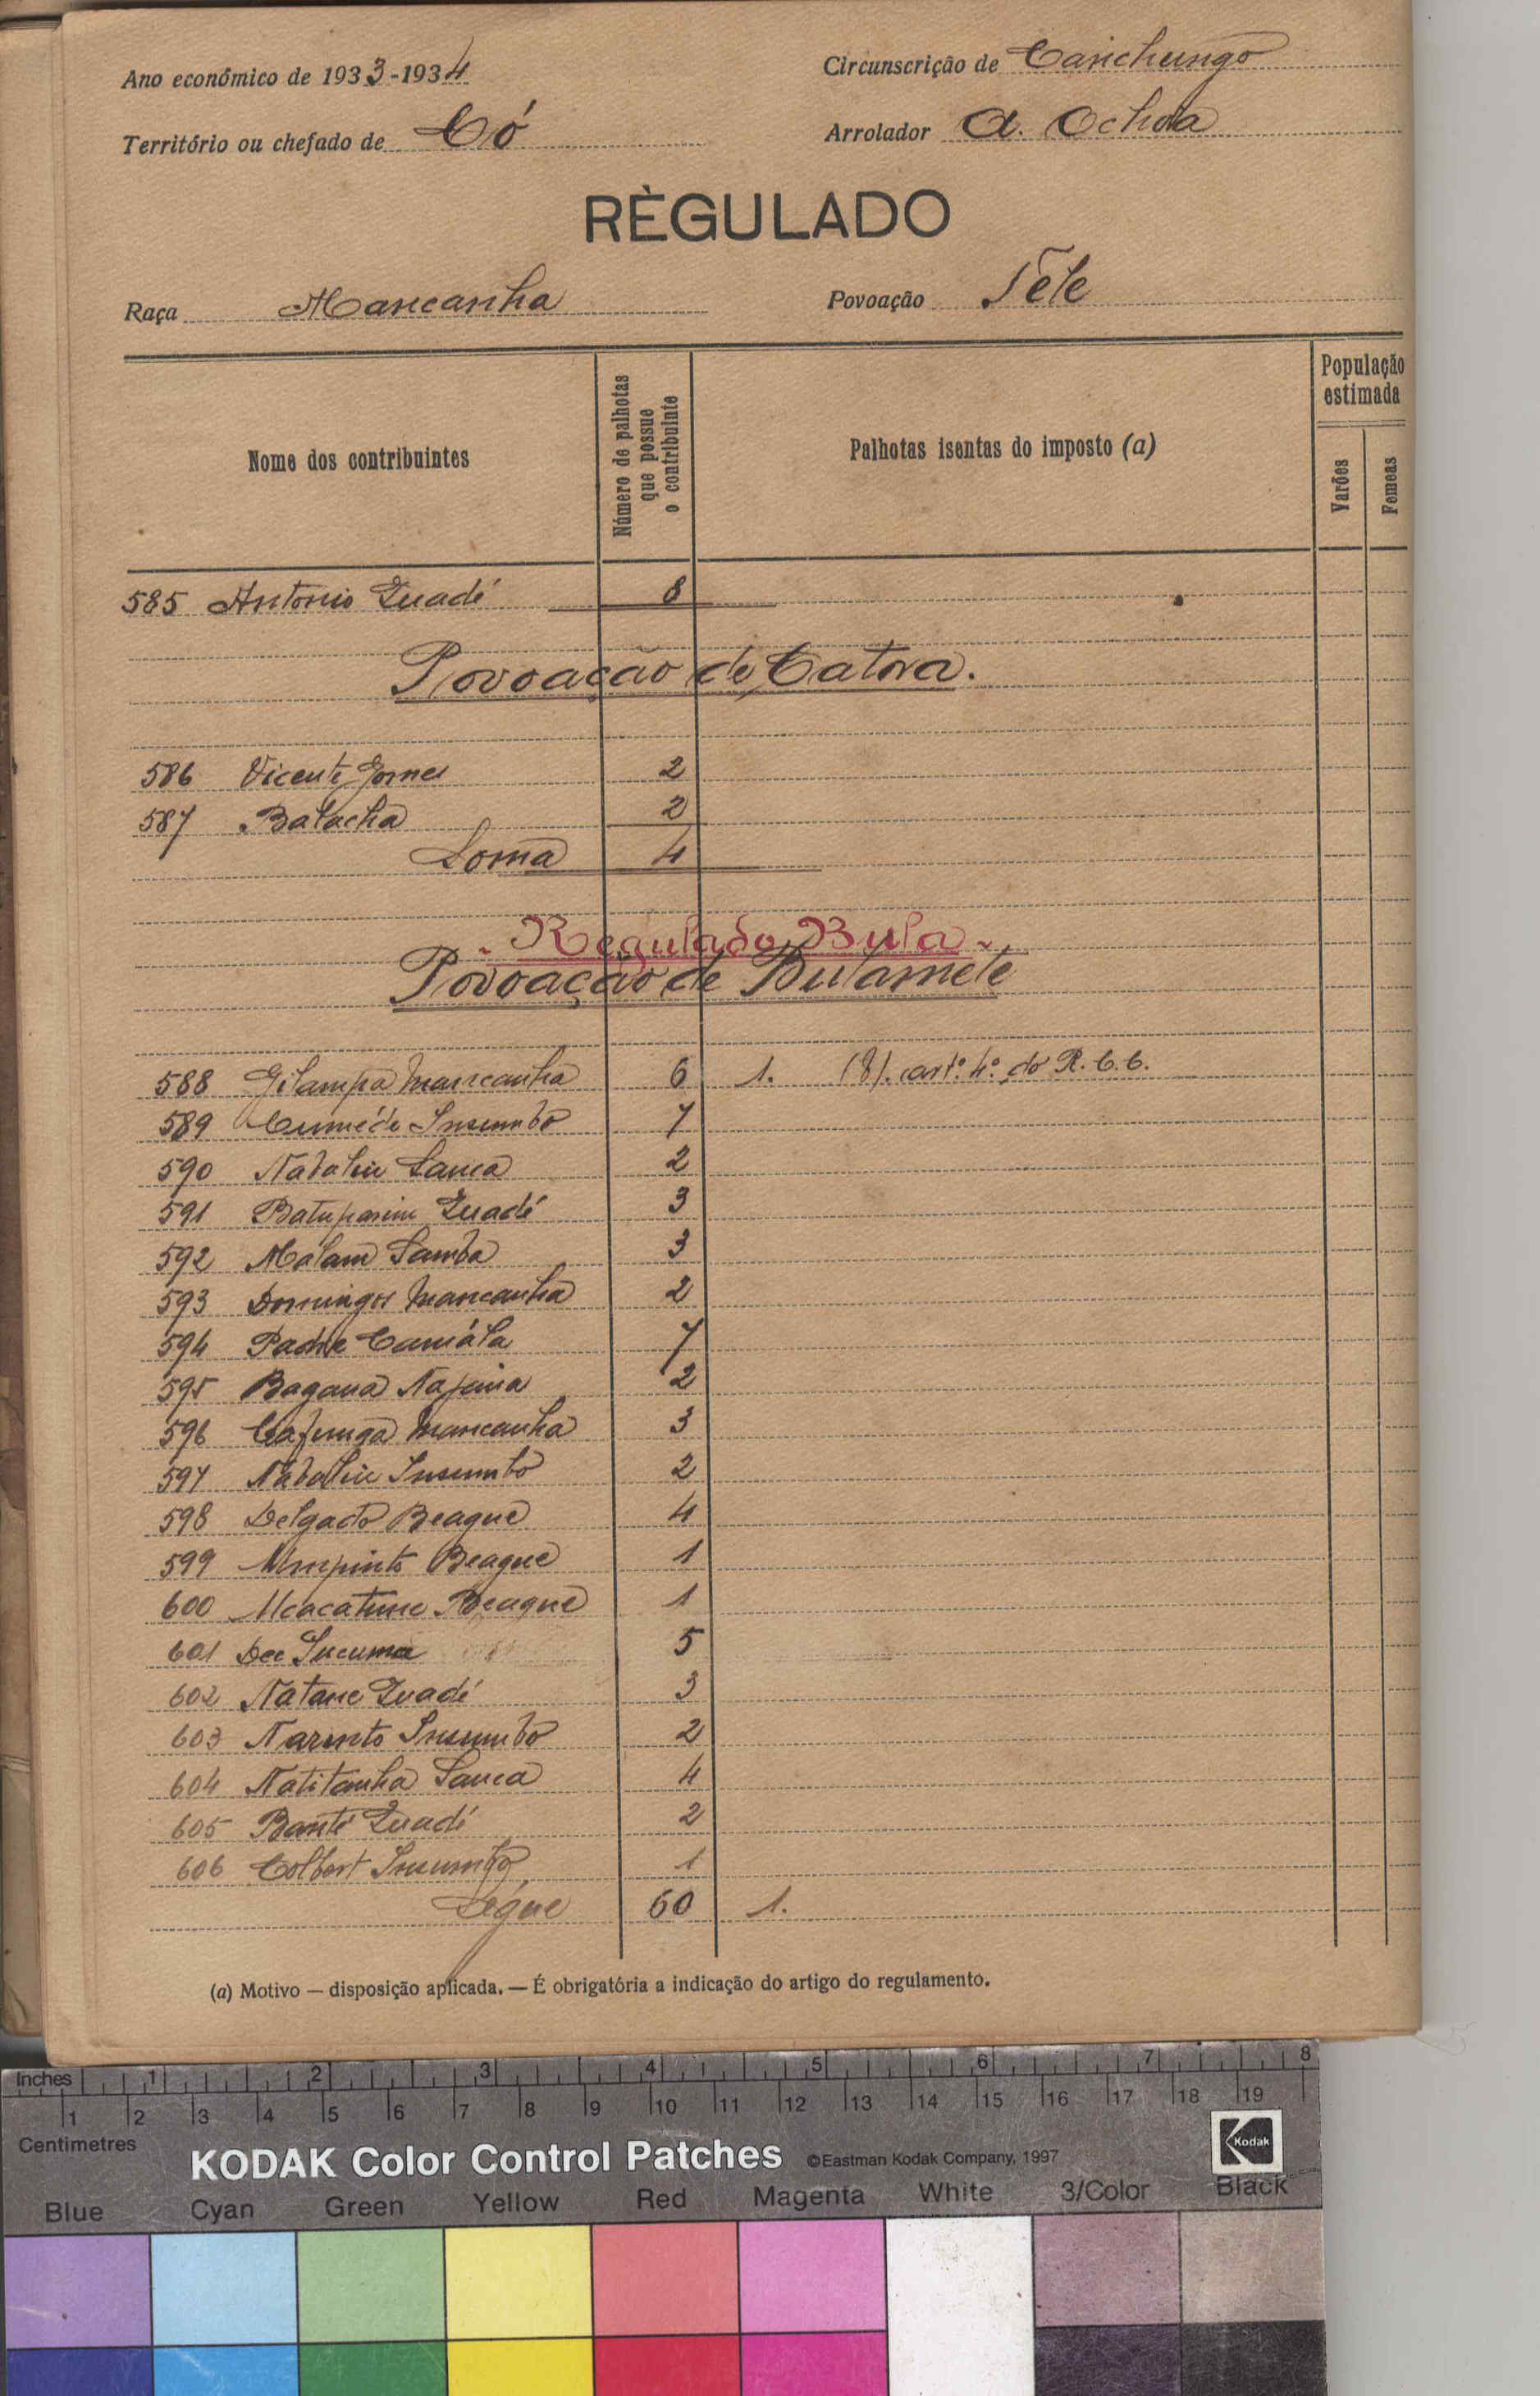 Ano económico de 1933-1934
Circunscrição de Canchungo
Território ou chefado de Có
Arrolador A. Ochôa
RÈGULADO
Raça Mancanha
Povoação Téle
Nome dos contribuintes
Número de palhotas que possue o contribuinte
Palhotas isentas do imposto (a)
População estimada
Varões
Femeas
585 Antonio Quadé 8
Povoação de Catora.
586 Vicente Gomes 2
587 Batacha 2
Soma 4
Regulado Bula
Povoação de Bulamete
588 Gilampa Mancanha 6 1. art.º 4.º do R. C. C.
589 Insumbo 7
590 Sanca 2
591 Quadé 3
592 Malam Samba 3
593 Domingos Mancanha 2
594 Padre Camála 7
595 Bagana Nafena 2
596 Cafunga Mancanha 3
597 Insumbo 2
598 Delgado Beague 4
599 Beague 1
600 Beague 1
601 Dee Sucuma 5
602 Natane Quadé 3
603 Insumbo 2
604 Natitanha Sanca 4
605 Banté Quadé 2
606 Colbert Insumbo 1
Segue 60 1.
(a) Motivo — disposição aplicada. — É obrigatória a indicação do artigo do regulamento.
Inches 1 2 3 4 5 6 7 8
1 2 3 4 5 6 7 8 9 10 11 12 13 14 15 16 17 18 19
Centimetres
KODAK Color Control Patches ©Eastman Kodak Company, 1997 Kodak
Blue Cyan Green Yellow Red Magenta White 3/Color Black